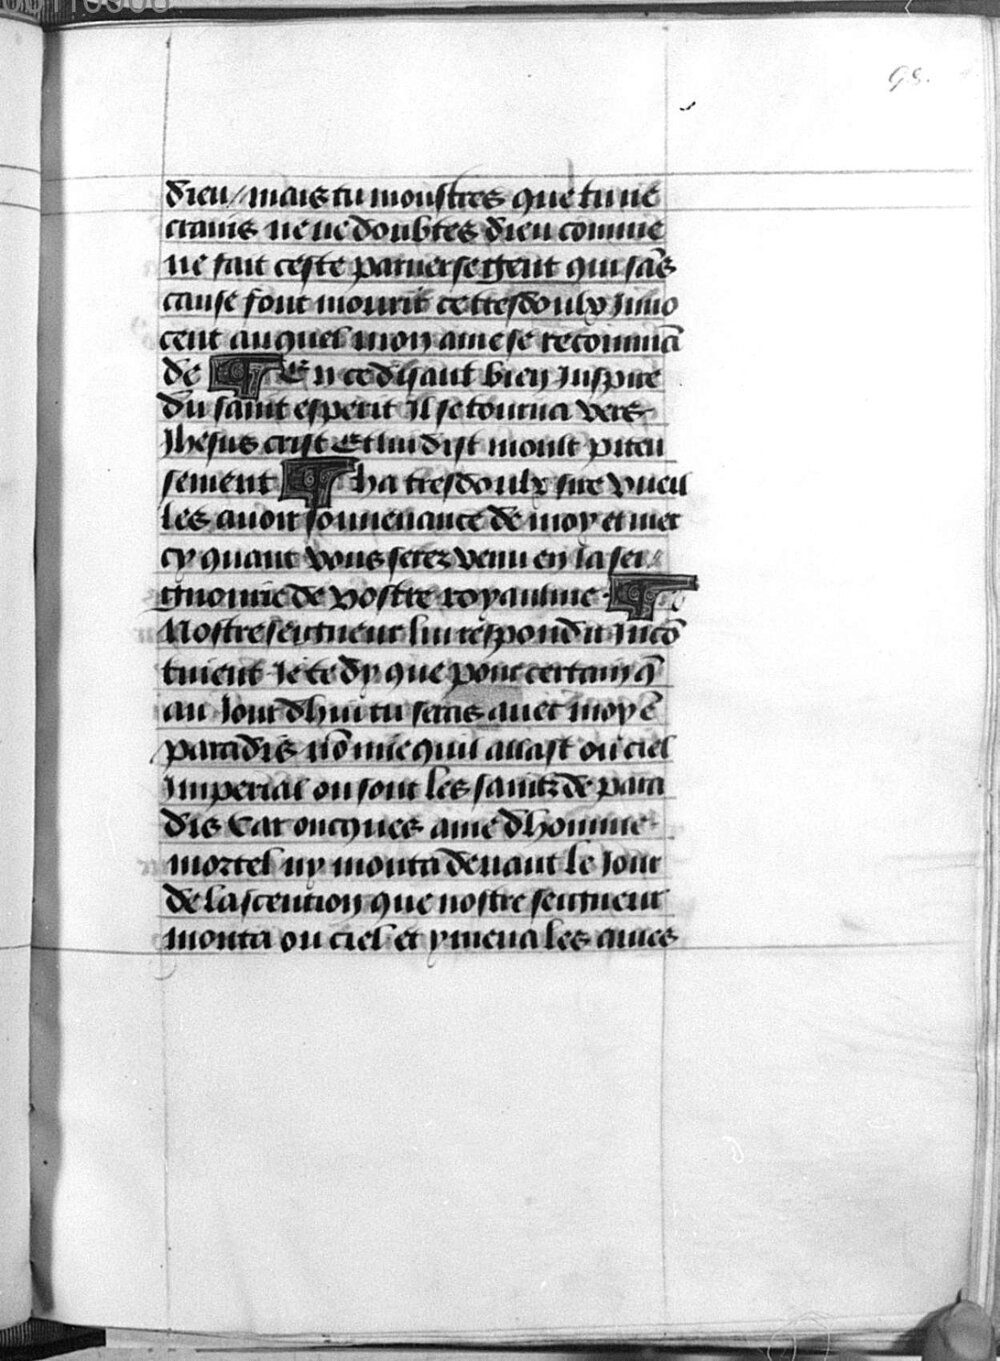 98.
dieu // mais tu monstres que tu ne
crains ne ne doubtes dieu comme
ne fait ceste paruerse gent qui sãs
cause font mourir ce tresdoulx Inno
cent au quel mon ame se recommã
de ¶ En ce disant bien Inspire
du saint esperit Il se tourna vers
Jhesus crist Et lui dist moult piteu
sement ¶ ha tresdoulx sire vueil
les auoir souuenance de moy et mer
cy quant vous serez venu en la sei
gnourie de vostre royaulme ¶
Nostre seigneur lui respondit Incõ
tinent Je te dy que pour certain q̃
au Jour dhui tu seras auec moy ẽ
paradis nõ mie quil allast ou ciel
Imperial ou sont les saintz de para
dis Car oncques ame dhomme
mortel ny monta deuant le Jour
de lascention que nostre seigneur
monta ou ciel et y mena les ames